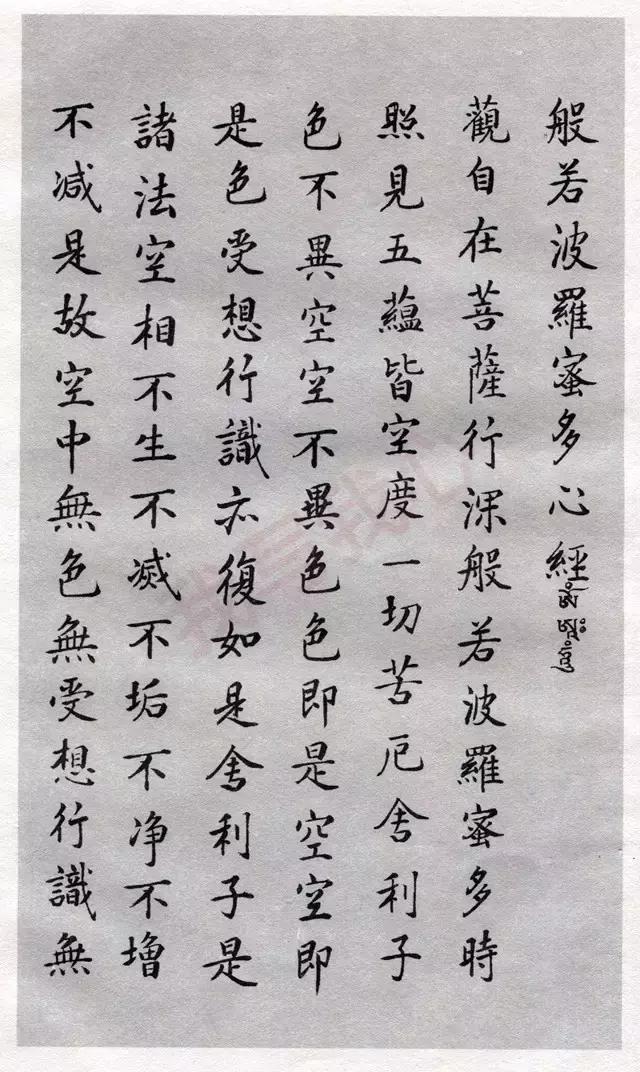 般若波羅蜜多心經
觀自在菩薩行深般若波羅蜜多時
照見五蘊皆空度一切苦厄舍利子
色不異空空不異色色即是空空即
是色受想行識亦復如是舍利子是
諸法空相不生不滅不垢不净不增
不减是故空中無色無受想行識無